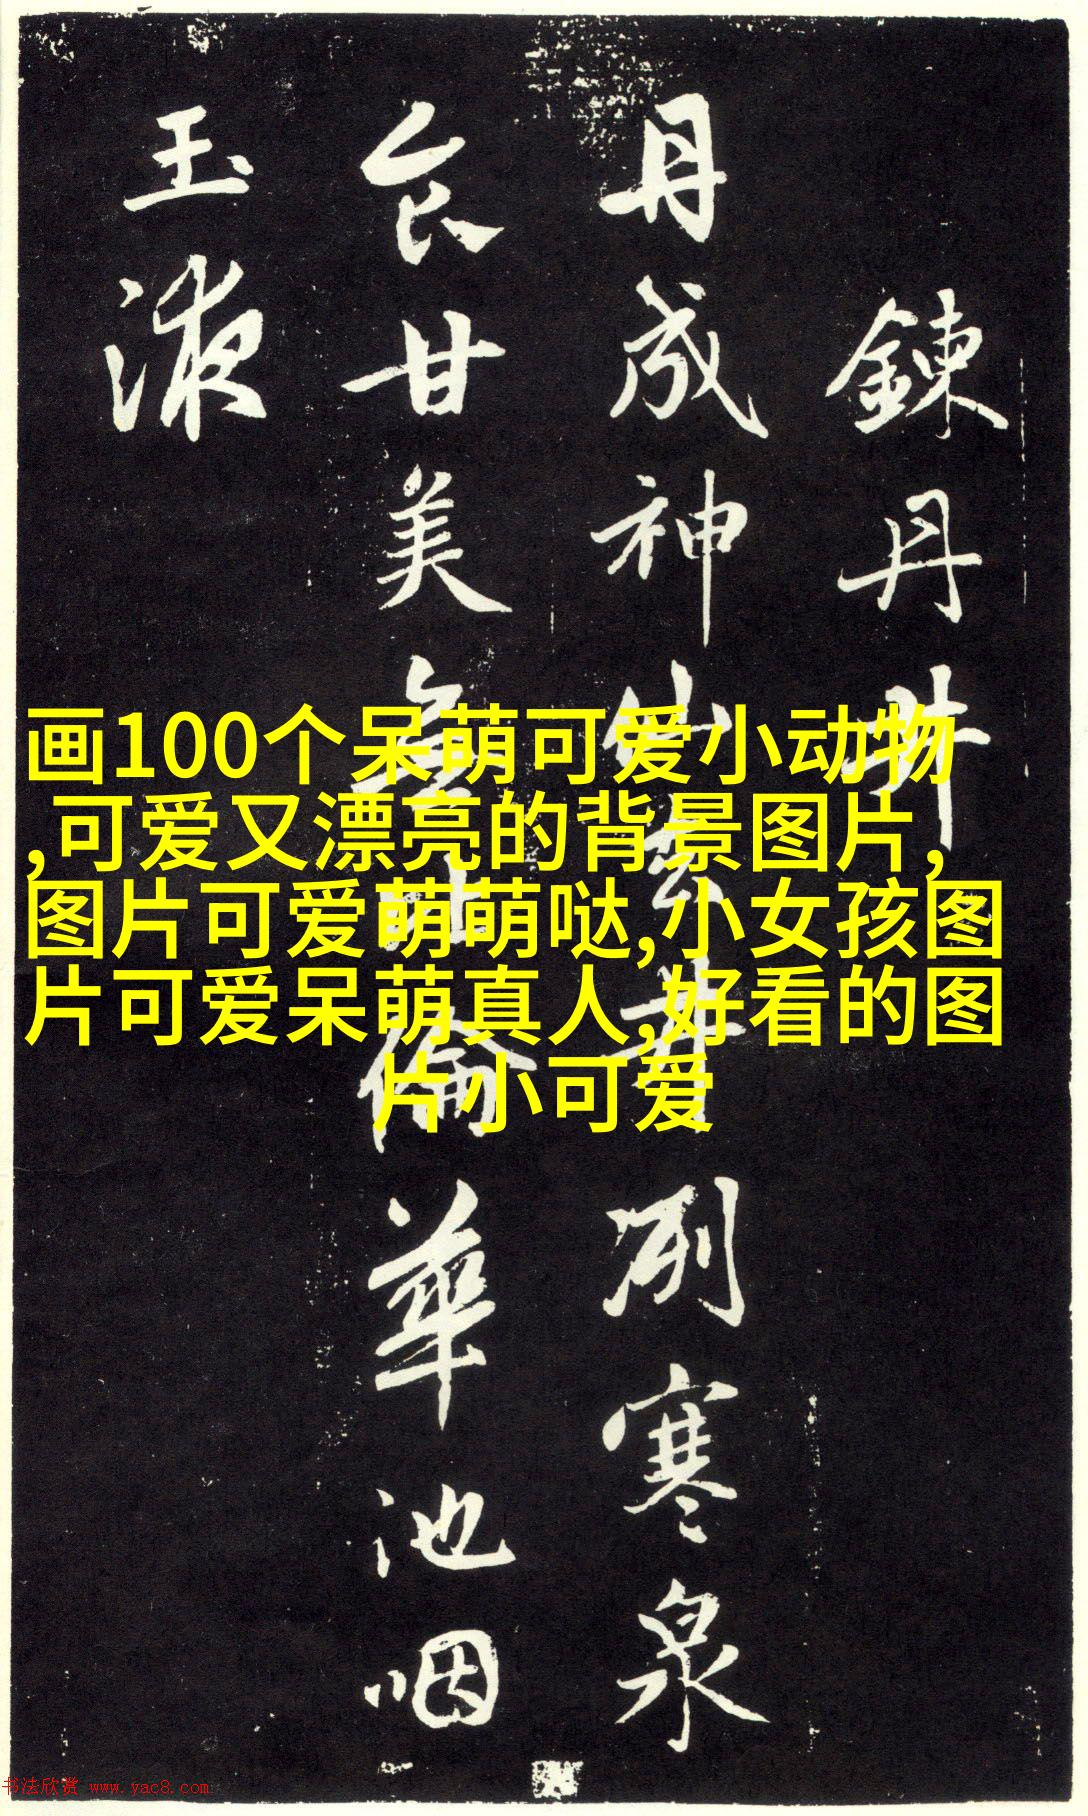 鍊丹井
丹成神仙去井冽寒泉
食甘美無比倫華池咽
玉液
画100个呆萌可爱小动物
,可爱又漂亮的背景图片,
图片可爱萌萌哒,小女孩图
片可爱呆萌真人,好看的图
片小可爱
书法欣赏 www.yac8.com